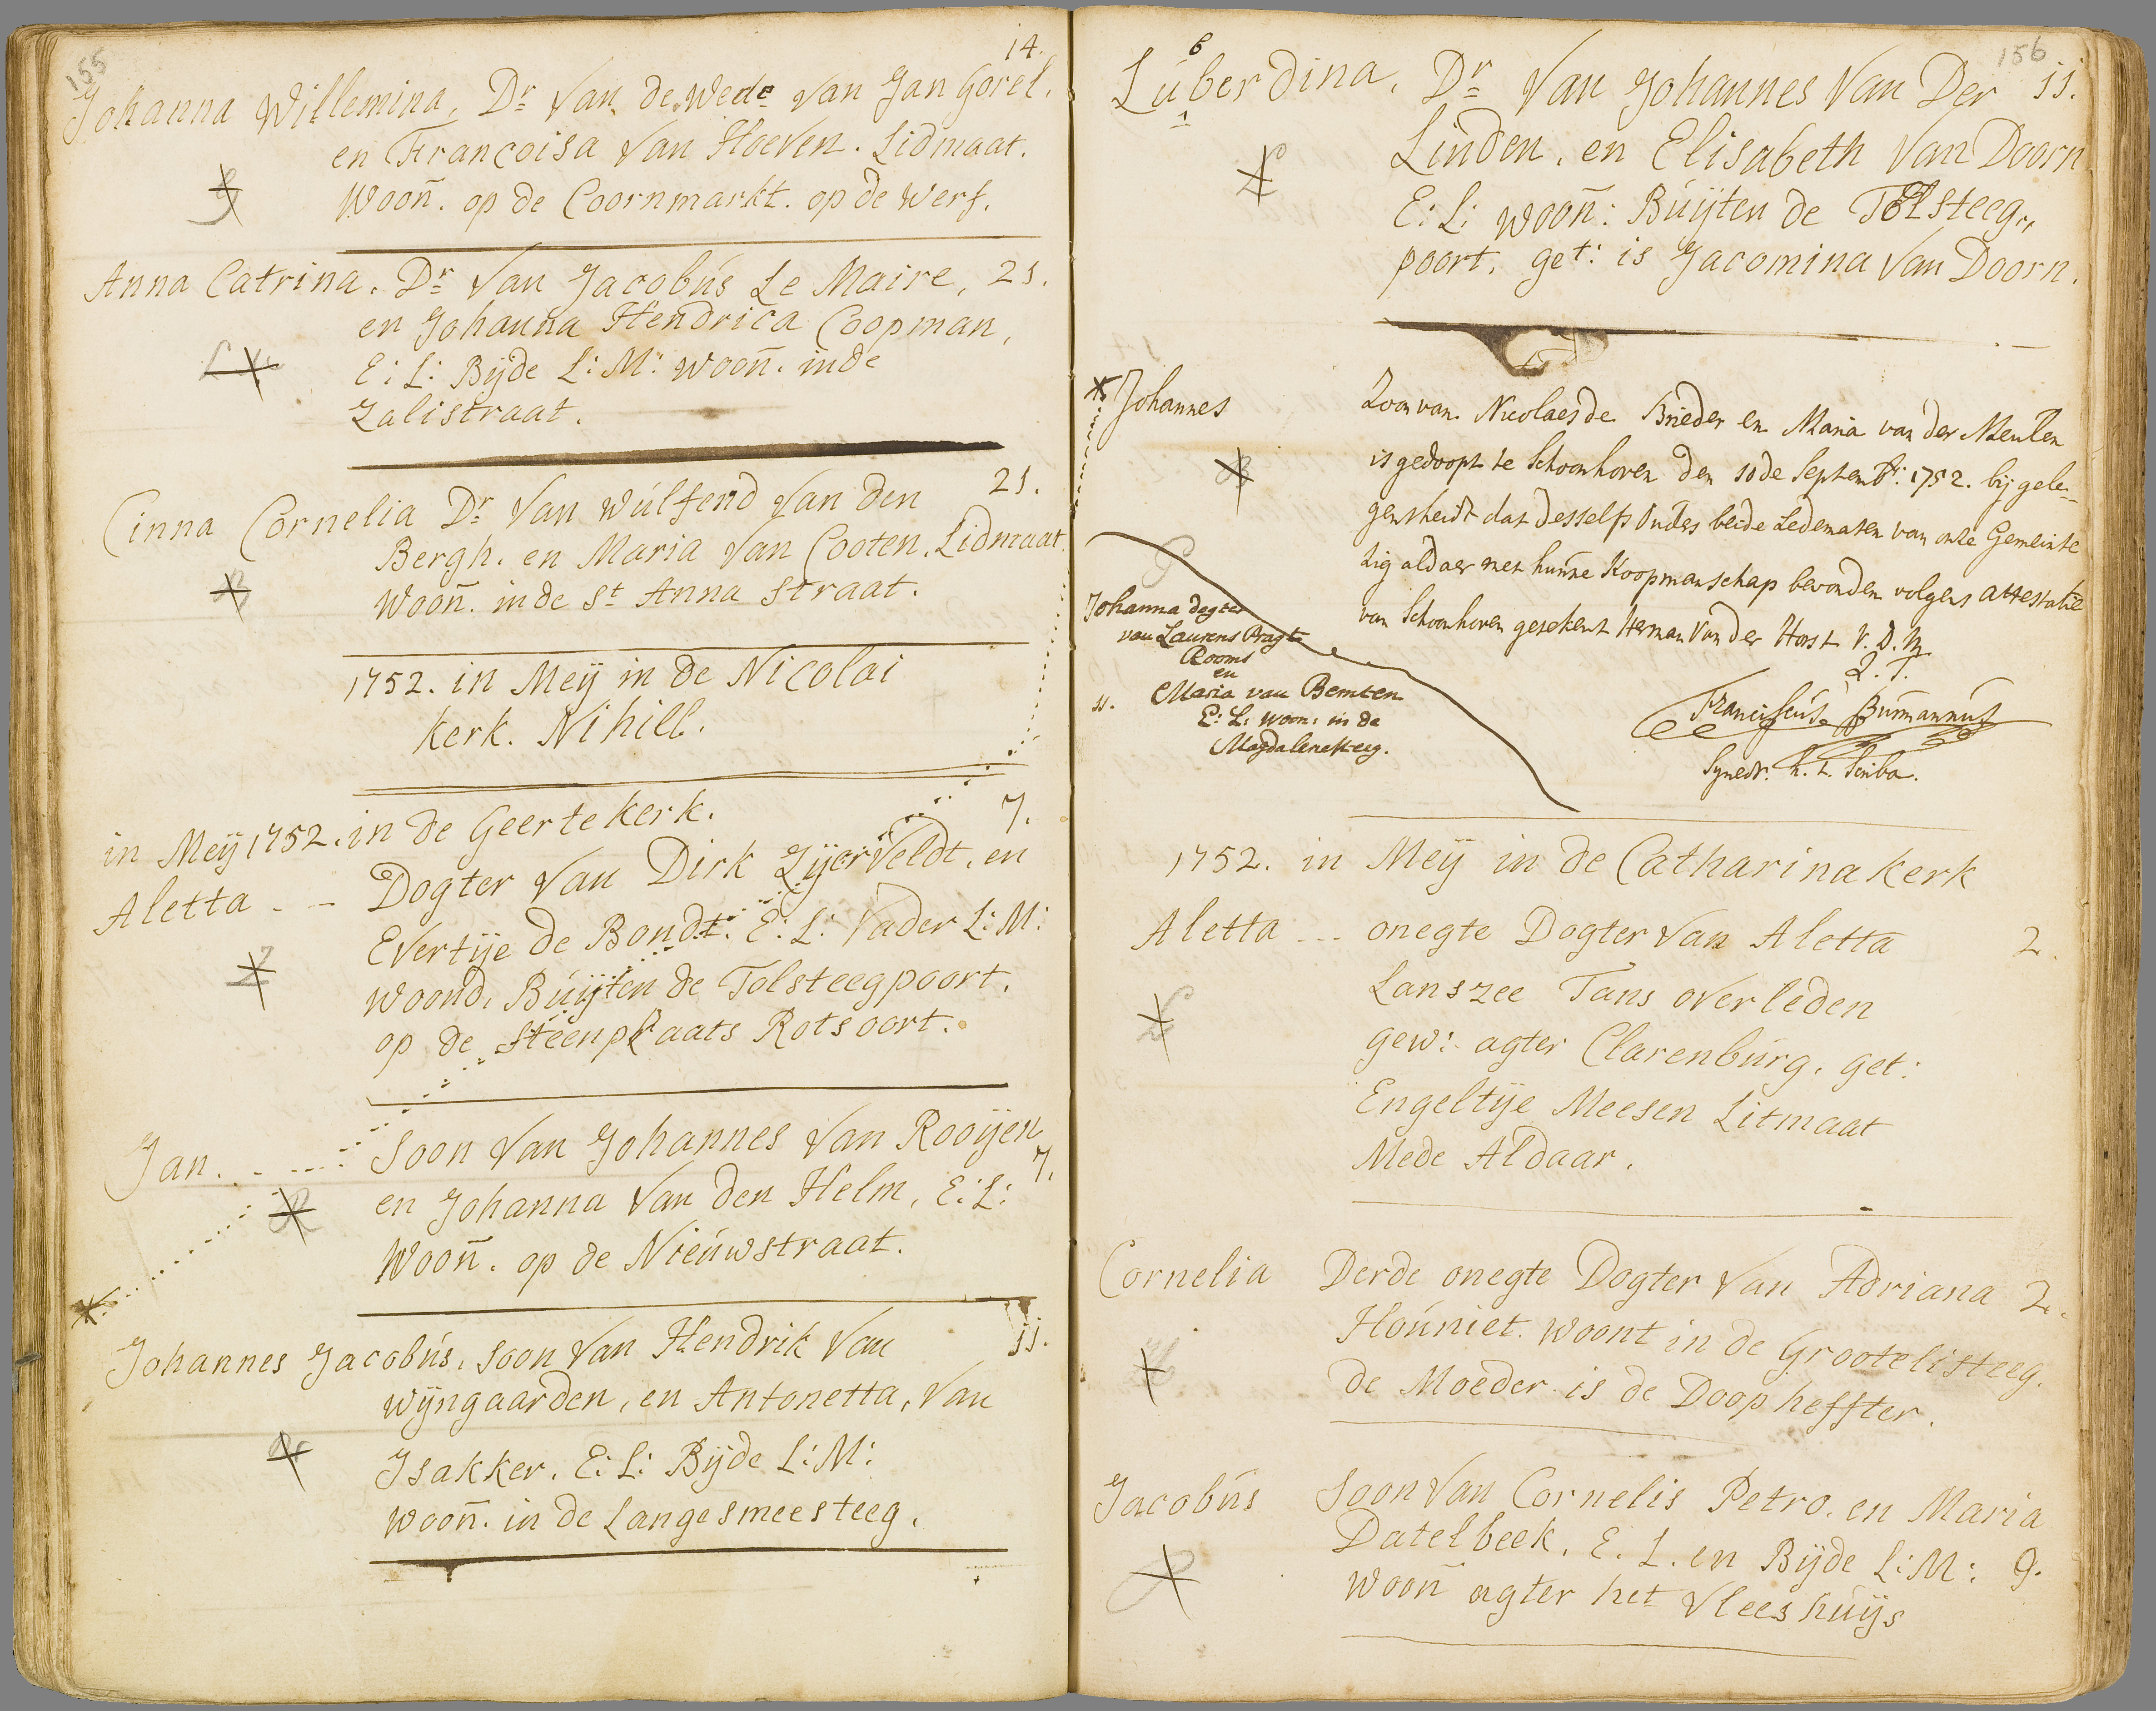 155
14.
Johanna Willemina, Dr van de Wede van Jan Gorel.
en Francoisa van Hoeven. Lidmaat.
Woon̄. op de Coornmarkt. op de Werf.
Anna Catrina. Dr van Jacobus Le Maire, 21.
en Johanna Hendrica Coopman,
E: L: Bijde L: M: woon̄. inde
Zalistraat.
Cinna Cornelia Dr van Wulfend van den 21.
Bergh. en Maria van Cooten. Lidmaat
Woon̄. in de St Anna straat.
1752. in Meij in de Nicolai
kerk. Nihill.
in Meij 1752. in de Geerte kerk. 7.
Aletta - - Dogter van Dirk Zijerveldt, en
Evertije de Bondt. E: L: Vader L: M:
Woond, Buijten de Tolsteegpoort.
op de steenplaats Rotsoort.
Jan. - - Soon van Johannes van Rooijen 7.
en Johanna van den Helm, E: L:
Woon̄. op de Nieuwstraat.
Johannes Jacobus, soon van Hendrik van 11.
Wijngaarden, en Antonetta, van
Isakker. E: L: Bijde L: M:
Woon̄. in de Langesmeesteeg.
156
Luberdina, Dr van Johannes van Der 11.
Linden, en Elisabeth van Doorn
E: L: woon̄: Buijten de Tolsteeg,,
poort, get: is Jacomina van Doorn.
Johannes Zoon van Nicolaes de Brieder en Maria van der Meulen
is gedoopt te Schoonhoven den 10de Septembr: 1752. bij gele-
gensheidt dat desselfs Ouders beide Ledematen van onse Gemeinte
zig aldaer met hunne Koopmanschap bevonden volgens attestatie
van Schoonhoven getekent Herman van der Horst V. D. M.
Q. T.
Franciscus Burmannus
Synedr. h. t. Scriba.
Johanna dogter
van Laurens Pragt
Rooms
en
11. Maria van Bemten
E: L: woon: in de
Magdalenesteeg.
1752. in Meij in de Catharina kerk
Aletta - - - onegte Dogter van Aletta 2.
Lanszee Tans overleden
gew: agter Clarenburg, get:
Engeltije Meesen Litmaat
Mede Aldaar.
Cornelia Derde onegte Dogter van Adriana 2.
Houniet. woont in de Grootelisteeg.
de Moeder is de Doop heffter.
Jacobus Soon van Cornelis Petro. en Maria
Datelbeek, E. L. en Bijde L: M: 9.
Woon̄ agter het Vleeshuijs